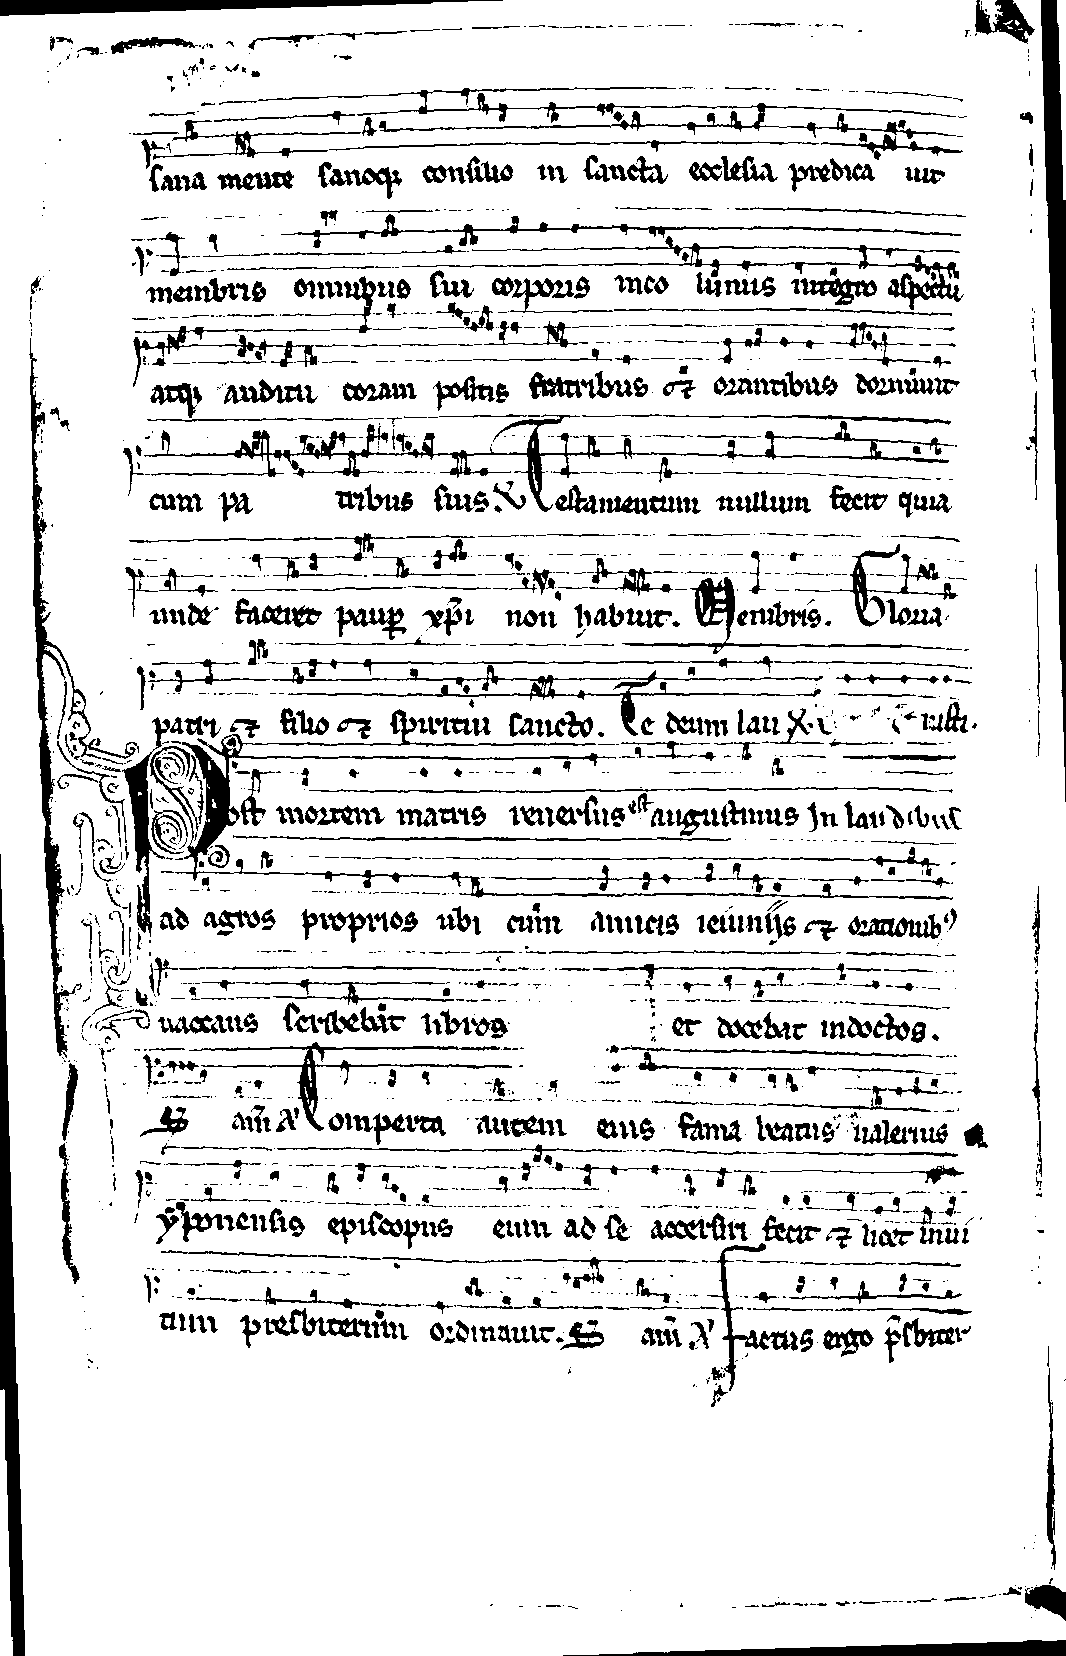 sana mente sanoqꝫ consilio in sancta ecclesia predica uit
membris omnibus sui corporis inco lumis integro aspectu
atqꝫ auditu coram positis fratribus et orantibus dormiuit
cum pa tribus suis. ℣ Testamentum nullum fecit quia
unde faceret paup̲ xp̄i non habuit. Membris. Gloria
patri et filio et spiritui sancto. Te deum lau iusti.
Post mortem matris reuersus est augustinus In laudibus
ad agros proprios ubi cum amicis ieiuniis et orationibꝰ
uaccans scribebat libros et docebat indoctos.
am̄ A Comperta autem eius fama beatus ualerius
yponensis episcopus eum ad se accersiri fecit et licet inui
tum presbiterum ordinauit. am̄ A Factus ergo p̄sbiter